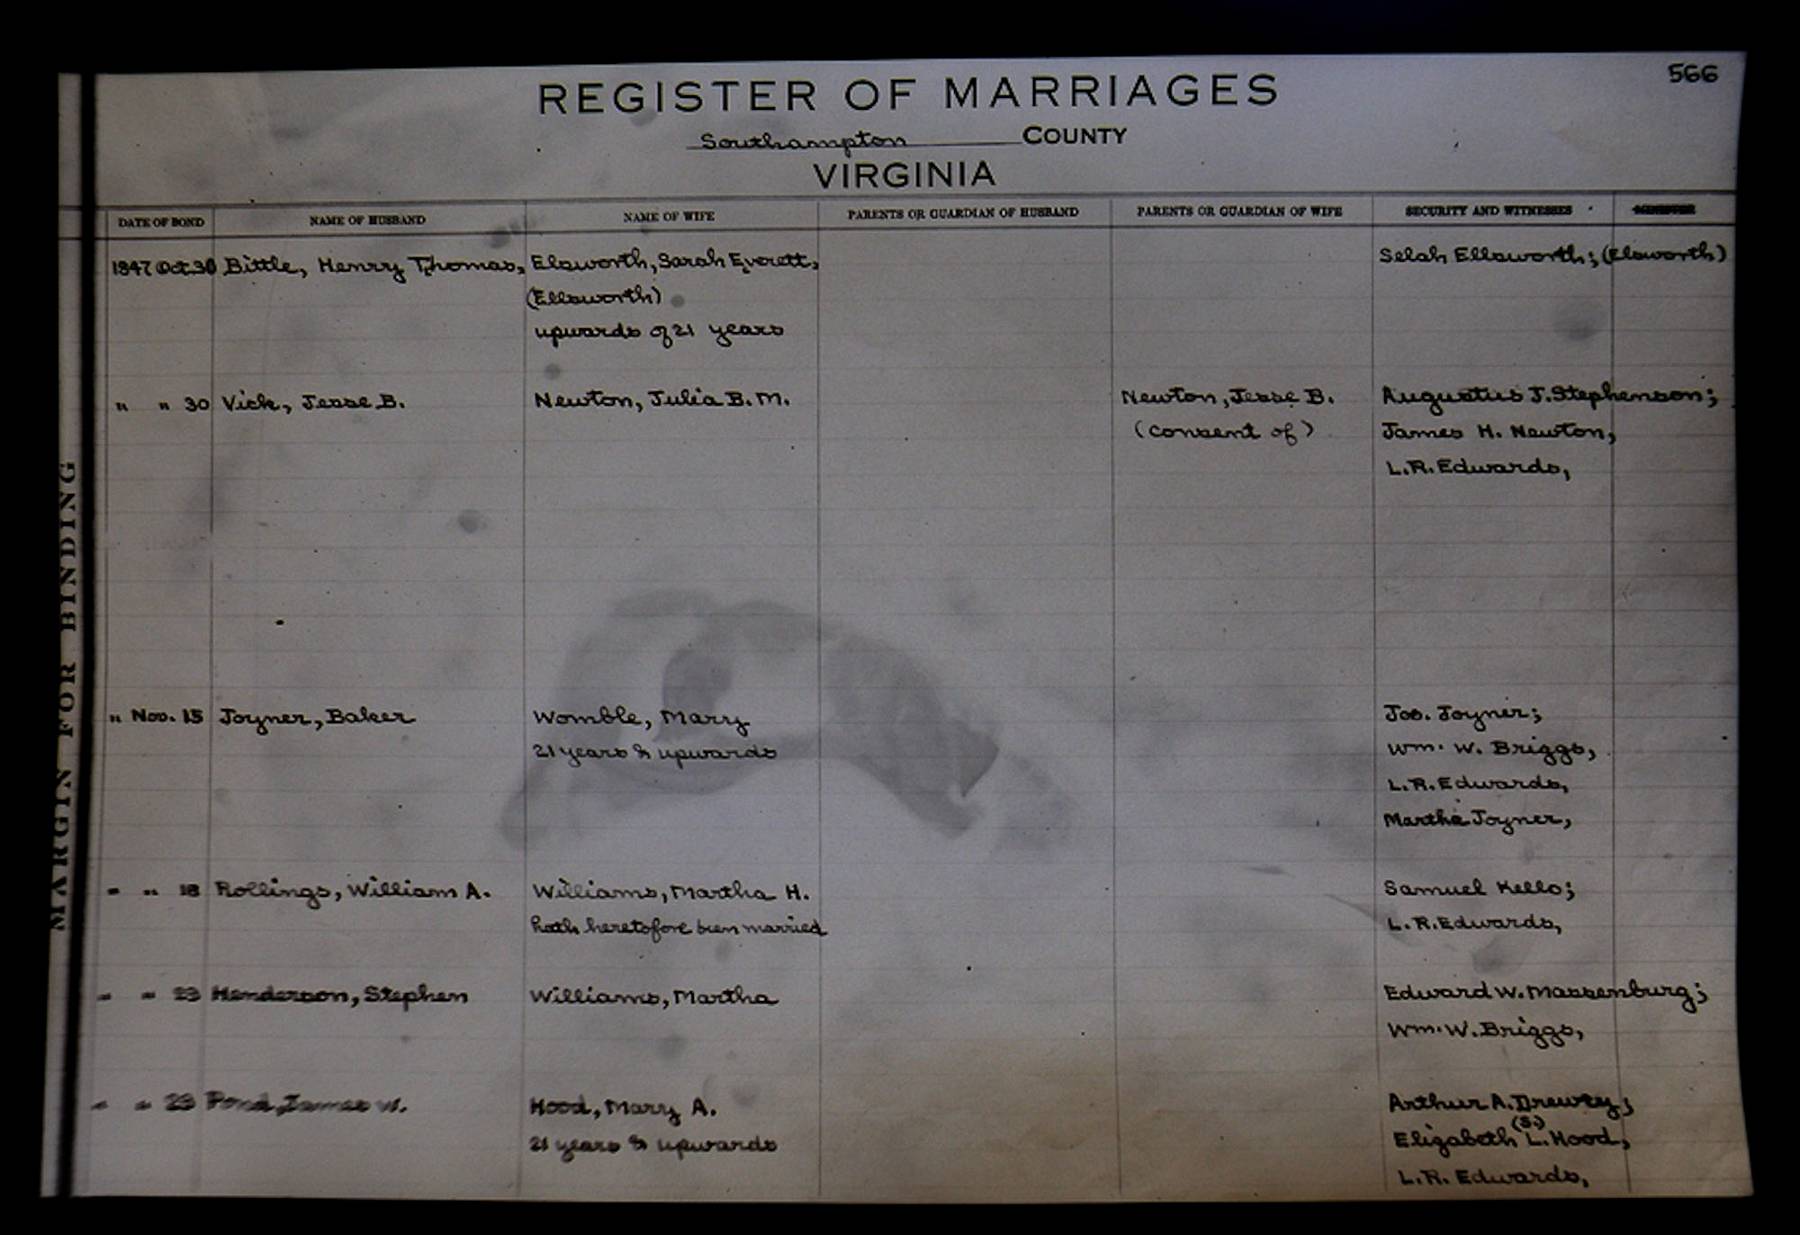 566
REGISTER OF MARRIAGES
Southampton COUNTY
VIRGINIA
DATE OF BOND NAME OF HUSBAND NAME OF WIFE PARENTS OR GUARDIAN OF HUSBAND PARENTS OR GUARDIAN OF WIFE SECURITY AND WITNESSES MINISTER
1847 Oct. 30 Bittle, Henry Thomas, Elsworth, Sarah Everett, Selah Ellsworth; (Elsworth)
(Ellsworth)
upwards of 21 years
" " 30 Vick, Jesse B. Newton, Julia B. M. Newton, Jesse B. Augustus J. Stephenson;
(consent of) James H. Newton,
L.R. Edwards,
" Nov. 15 Joyner, Baker Womble, Mary Jos. Joyner;
21 years & upwards Wm. W. Briggs,
L.R. Edwards,
Martha Joyner,
" " 18 Rollings, William A. Williams, Martha H. Samuel Kello;
hath heretofore been married L.R. Edwards,
" " 23 Henderson, Stephen Williams, Martha Edward W. Massenburg;
Wm. W. Briggs,
" " 23 Pond, James W. Hood, Mary A. Arthur A. Drewry;
21 years & upwards Elizabeth (S.) L. Hood,
L.R. Edwards,
MARGIN FOR BINDING